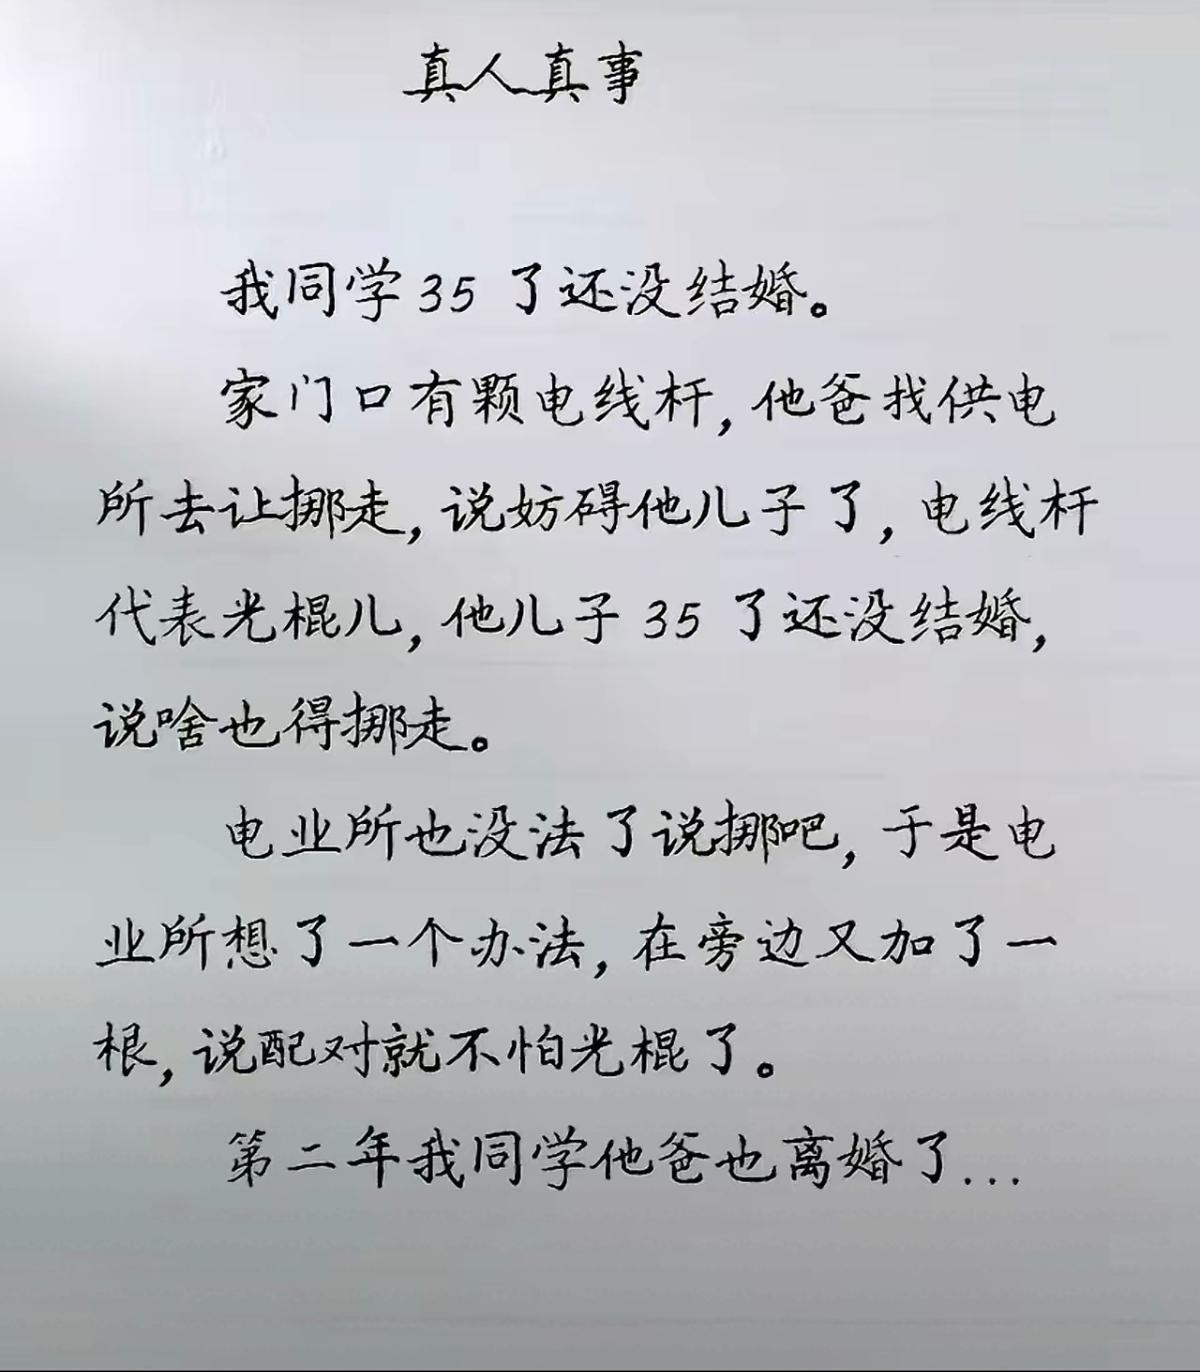 真人真事
我同学35了还没结婚。
家门口有颗电线杆,他爸找供电
所去让挪走,说妨碍他儿子了,电线杆
代表光棍儿,他儿子35了还没结婚,
说啥也得挪走。
电业所也没法了说挪吧,于是电
业所想了一个办法,在旁边又加了一
根,说配对就不怕光棍了。
第二年我同学他爸也离婚了...